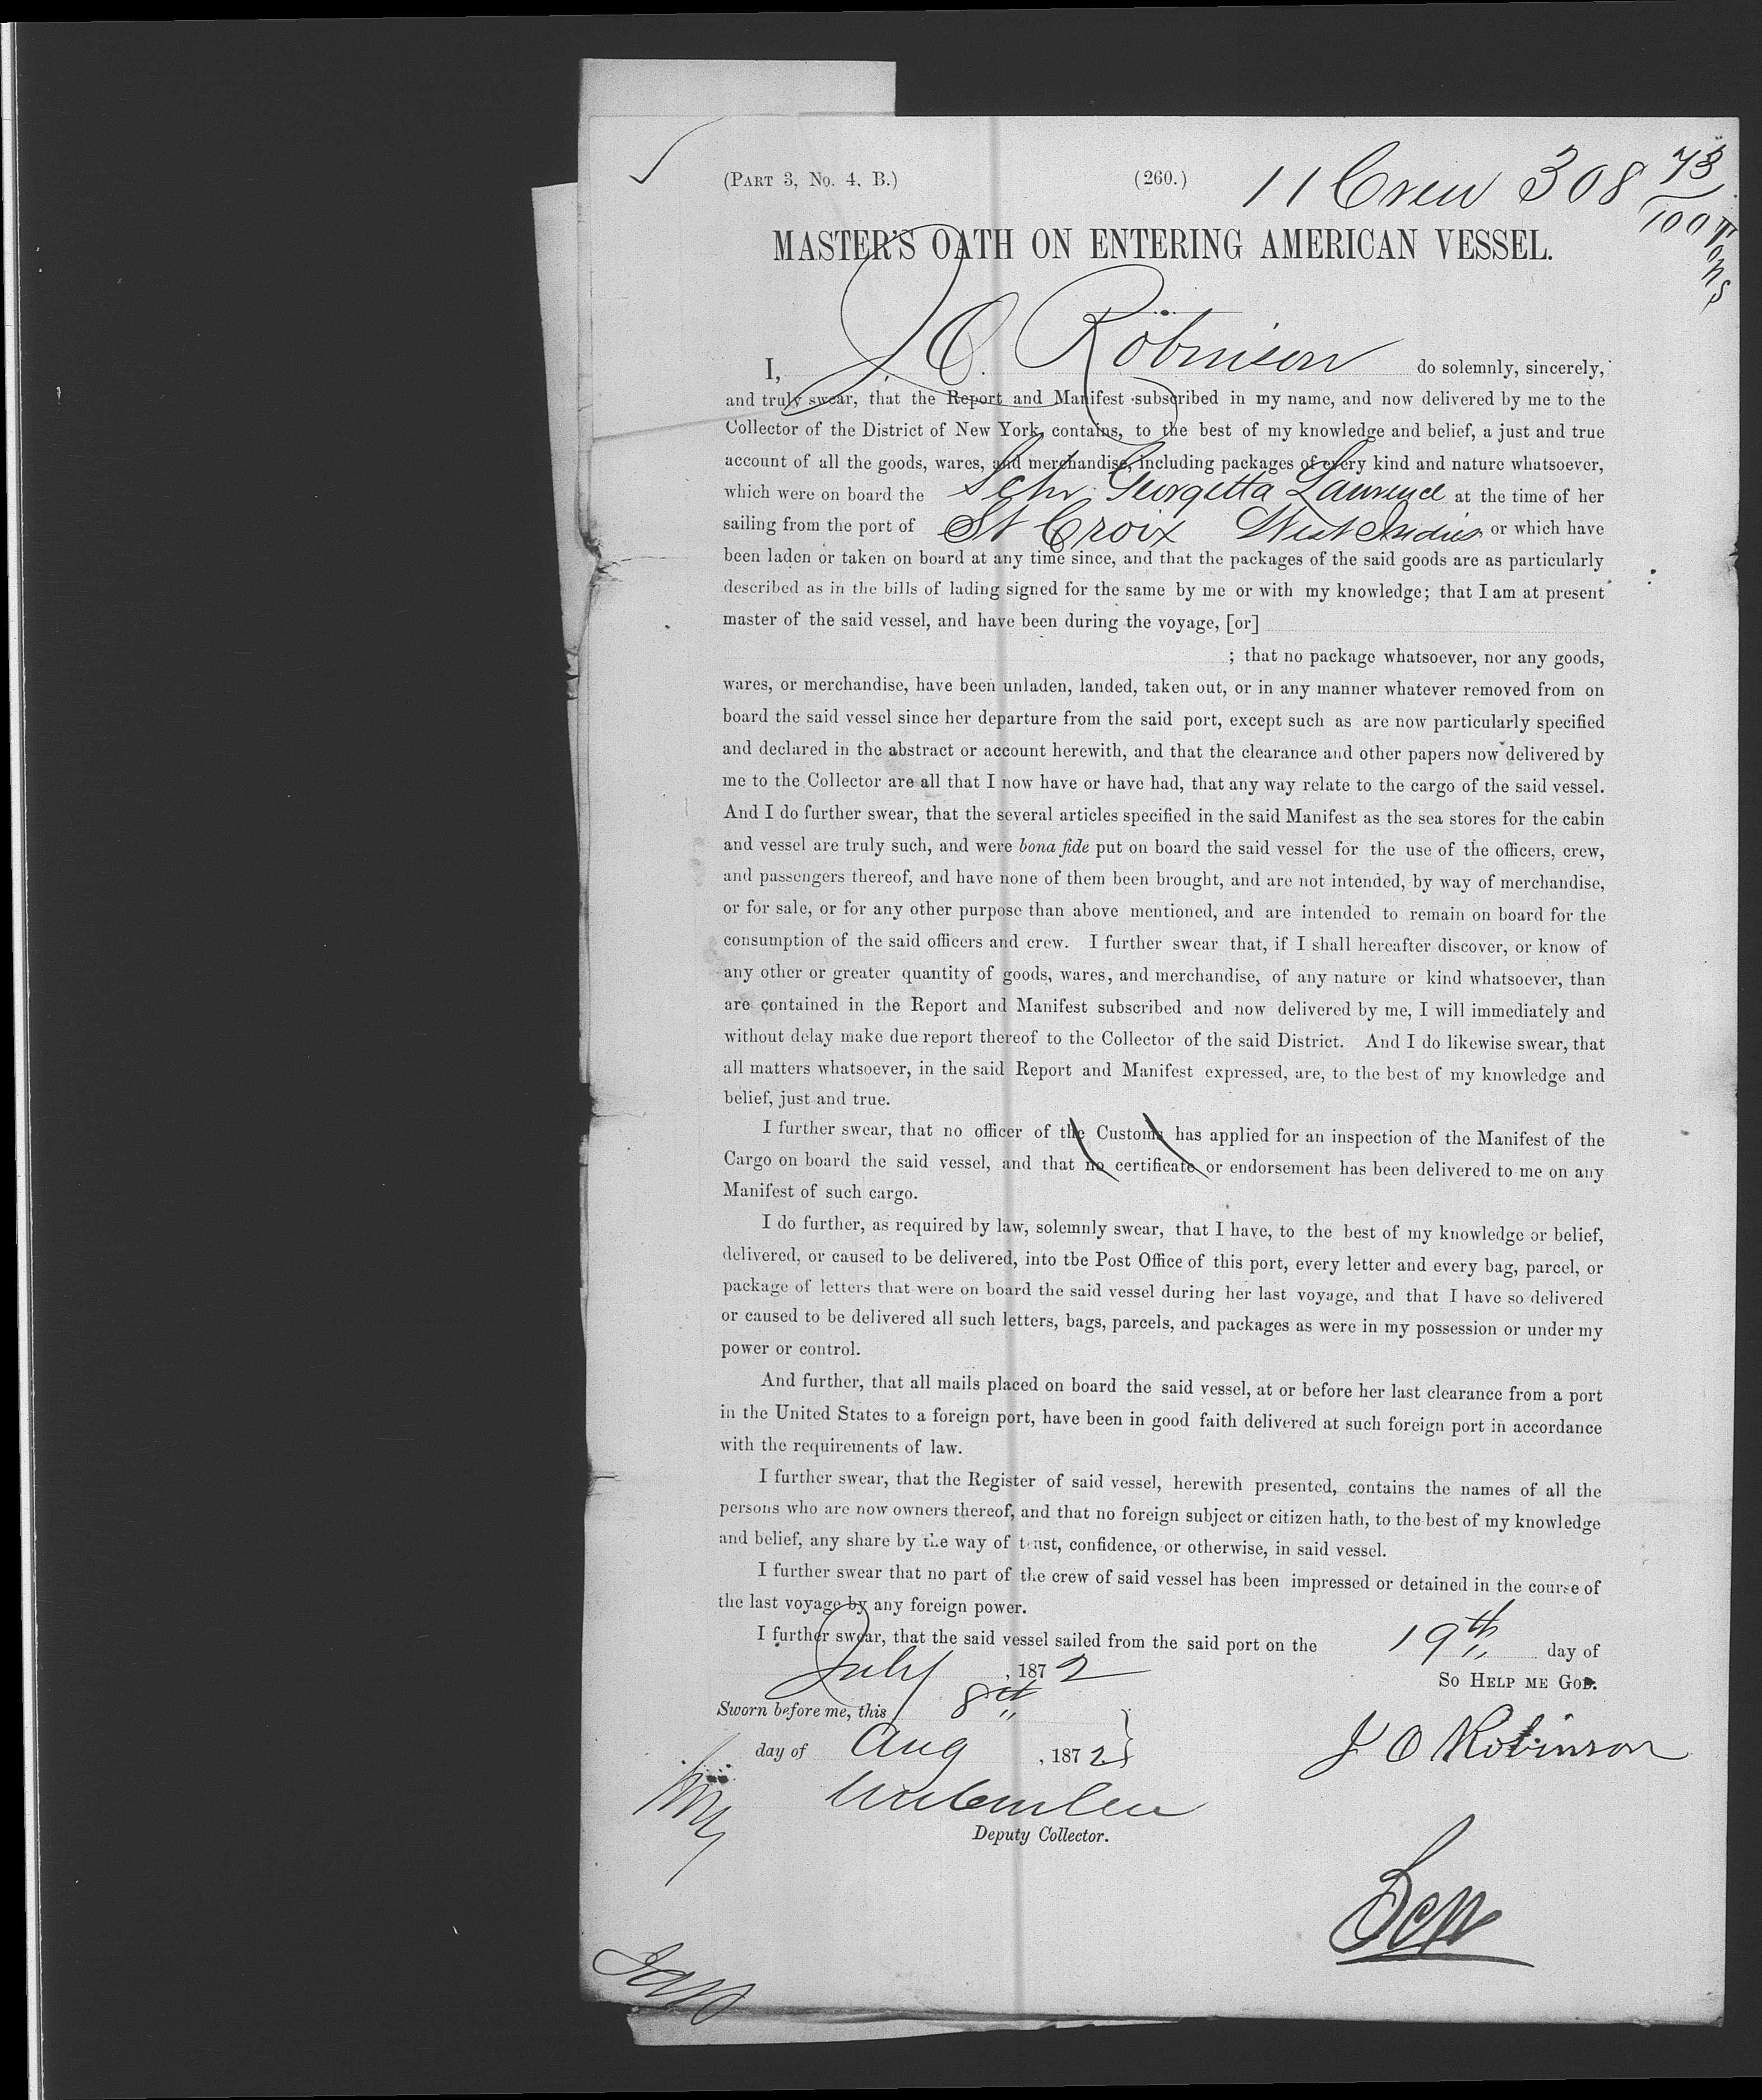 (PART 3, No. 4, B.) (260.) 11 Crew 308 73/100 Tons
MASTER'S OATH ON ENTERING AMERICAN VESSEL.
I, J. O. Robinson do solemnly, sincerely,
and truly swear, that the Report and Manifest subscribed in my name, and now delivered by me to the
Collector of the District of New York, contains, to the best of my knowledge and belief, a just and true
account of all the goods, wares, and merchandise, including packages of every kind and nature whatsoever,
which were on board the Schr Georgetta Lawrence at the time of her
sailing from the port of St Croix West Indies or which have
been laden or taken on board at any time since, and that the packages of the said goods are as particularly
described as in the bills of lading signed for the same by me or with my knowledge; that I am at present
master of the said vessel, and have been during the voyage, [or]
; that no package whatsoever, nor any goods,
wares, or merchandise, have been unladen, landed, taken out, or in any manner whatever removed from on
board the said vessel since her departure from the said port, except such as are now particularly specified
and declared in the abstract or account herewith, and that the clearance and other papers now delivered by
me to the Collector are all that I now have or have had, that any way relate to the cargo of the said vessel.
And I do further swear, that the several articles specified in the said Manifest as the sea stores for the cabin
and vessel are truly such, and were bona fide put on board the said vessel for the use of the officers, crew,
and passengers thereof, and have none of them been brought, and are not intended, by way of merchandise,
or for sale, or for any other purpose than above mentioned, and are intended to remain on board for the
consumption of the said officers and crew. I further swear that, if I shall hereafter discover, or know of
any other or greater quantity of goods, wares, and merchandise, of any nature or kind whatsoever, than
are contained in the Report and Manifest subscribed and now delivered by me, I will immediately and
without delay make due report thereof to the Collector of the said District. And I do likewise swear, that
all matters whatsoever, in the said Report and Manifest expressed, are, to the best of my knowledge and
belief, just and true.
I further swear, that no officer of the Customs has applied for an inspection of the Manifest of the
Cargo on board the said vessel, and that no certificate or endorsement has been delivered to me on any
Manifest of such cargo.
I do further, as required by law, solemnly swear, that I have, to the best of my knowledge or belief,
delivered, or caused to be delivered, into the Post Office of this port, every letter and every bag, parcel, or
package of letters that were on board the said vessel during her last voyage, and that I have so delivered
or caused to be delivered all such letters, bags, parcels, and packages as were in my possession or under my
power or control.
And further, that all mails placed on board the said vessel, at or before her last clearance from a port
in the United States to a foreign port, have been in good faith delivered at such foreign port in accordance
with the requirements of law.
I further swear, that the Register of said vessel, herewith presented, contains the names of all the
persons who are now owners thereof, and that no foreign subject or citizen hath, to the best of my knowledge
and belief, any share by the way of trust, confidence, or otherwise, in said vessel.
I further swear that no part of the crew of said vessel has been impressed or detained in the course of
the last voyage by any foreign power.
I further swear, that the said vessel sailed from the said port on the 19th day of
July , 1872
SO HELP ME GOD.
Sworn before me, this 8th
day of Aug , 1872
J O Robinson
Deputy Collector.